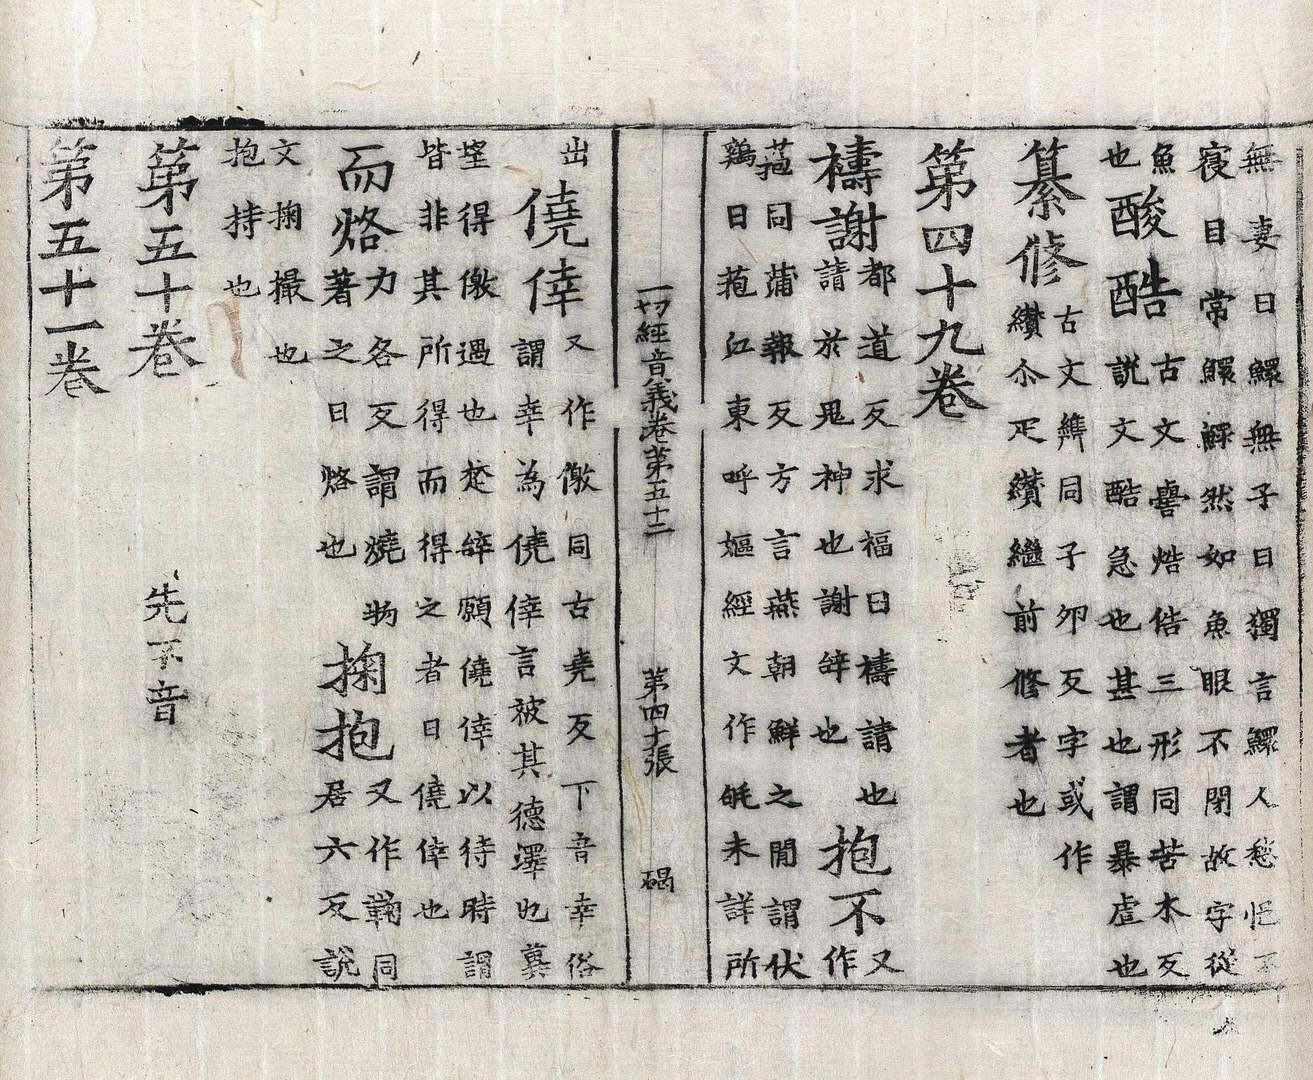 無妻曰鰥無子曰獨言鰥人愁悒不
寑目常鰥鰥然如魚眼不閉故字從
魚
也
酸酷
古文嚳焅俈三形同苦木反
說文酷急也甚也謂暴虐也
纂修
古文㒞同子卯反字或作
纘尒疋纘繼前修者也
第四十九卷
禱謝
都道反求福曰禱請也
請於鬼神也謝辝也
抱不
又
作
菢同蒲報反方言燕朝鮮之間謂伏
鷄曰菢江東呼嫗經文作毻未詳所
一切經音義卷第五十二
第四十張
碣
出
僥倖
又作儌同古堯反下音幸俗
謂幸為僥倖言被其德澤也冀
望得儌遇也楚辝願僥倖以待時謂
皆非其所得而得之者曰僥倖也
而烙
力各反謂燒物
著之曰烙也
掬抱
又作鞠同
居六反說
文掬撮也
抱持也
第五十卷
先不音
第五十一卷